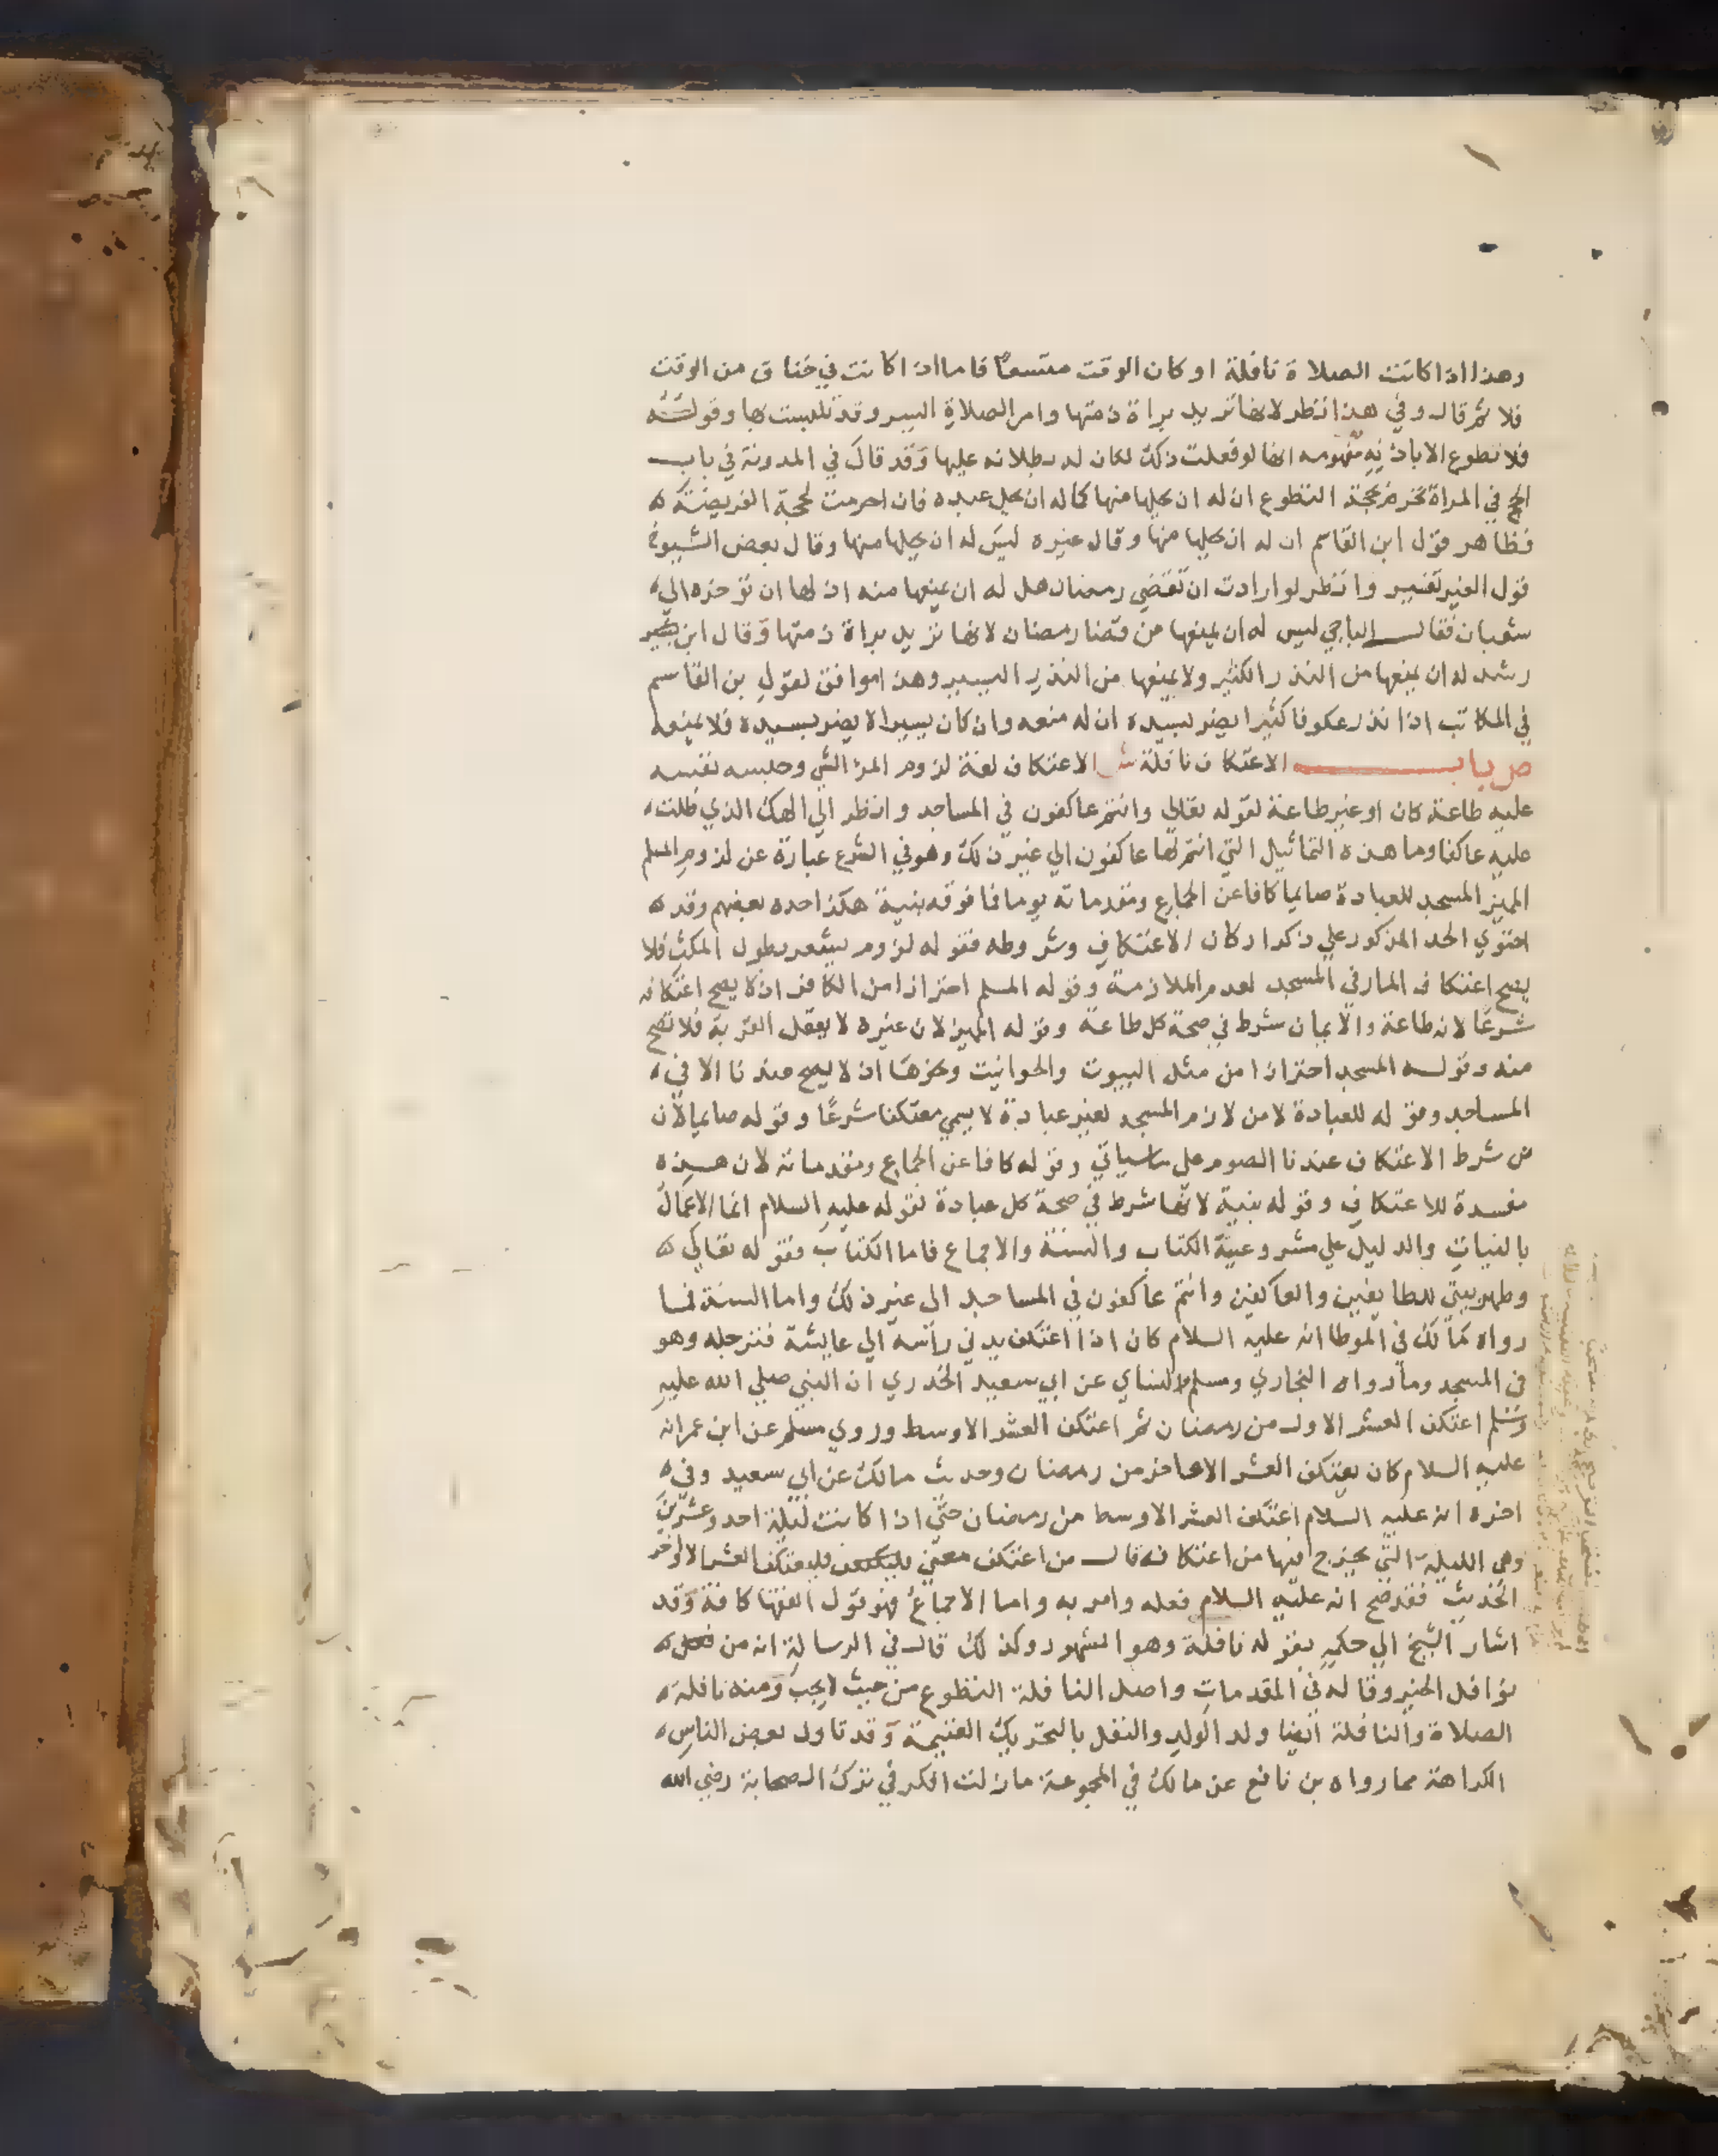 وهذا اذا كانت الصلاة نافلة او كان الوقت متسعا فاما اذا كانت في خناق من الوقت
فلا ثم قال وفي هذا نظر لانها تريد براة ذمتها وامر الصلاة اليسر وقد تلبست بها وقوله
فلا تطوع الا باذنه مفهومه انها لو فعلت ذلك لكان له بطلانه عليها وقد قال في المدونة في باب
الحج في المراة تحرم بحجة التطوع ان له ان يحلها منها كما له ان يحل عبده فان احرمت لحجة الفريضة
فظاهر قول ابن القاسم ان له ان يحلها منها وقال غيره ليس له ان يحلها منها وقال بعض الشيوخ
قول الغير تفسير وانظر لو ارادت ان تقضي رمضان هل له ان يمنعها منه اذ لها ان توخره الي
شعبان فقال الباجي ليس له ان يمنعها من قضا رمضان لانها تريد براة ذمتها وقال ابن
رشد له ان يمنعها من النذر الكثير ولا يمنعها من النذر اليسير وهذا موافق لقول بن القاسم
في المكاتب اذا نذر عكوفا كثيرا يضر بسيده ان له منعه وان كان يسيرا لا يضر بسيده فلا يمنعه
ص باب الاعتكاف نافلة ش الاعتكاف لغة لزوم المرء الشي وحبسه نفسه
عليه طاعة كان او غير طاعة لقوله تعالي وانتم عاكفون في المساجد وانظر الي الهك الذي ظلت
عليه عاكفا وما هذه التماثيل التي انتم لها عاكفون الي غير ذلك وهو في الشرع عبارة عن لزوم المسلم
المميز المسجد للعبادة صايما كافا عن الجماع ومقدماته يوما فما فوقه بنية هكذا حده بعضهم وقد
احتوي الحد المذكور علي ذكر اركان الاعتكاف وشروطه فقوله لزوم يشعر بطول المكث فلا
يصح اعتكاف المار في المسجد لعدم الملازمة وقوله المسلم احترازا من الكافر اذ لا يصح اعتكافه
شرعا لانه طاعة والايمان شرط في صحة كل طاعة وقوله المميز لان غيره لا يعقل القربة فلا تصح
منه وقوله المسجد احترازا من مثل البيوت والحوانيت ونحوها اذ لا يصح عندنا الا في
المساجد وقوله للعبادة لا من لازم المسجد لغير عبادة لا يسمي معتكفا شرعا وقوله صايما لان
من شرط الاعتكاف عندنا الصوم علي ما سياتي وقوله كافا عن الجماع ومقدماته لان هذه
مفسدة للاعتكاف وقوله بنية لانها شرط في صحة كل عبادة لقوله عليه السلام انما الاعمال
بالنيات والدليل علي مشروعية الكتاب والسنة والاجماع فاما الكتاب فقوله تعالي
وطهر بيتي للطايفين والعاكفين وانتم عاكفون في المساجد الي غير ذلك واما السنة فما
رواه مالك في الموطا انه عليه السلام كان اذا اعتكف يدني راسه الي عايشة فترجله وهو
في المسجد وما رواه البخاري ومسلم والنساي عن ابي سعيد الخدري ان النبي صلي الله عليه
وسلم اعتكف العشر الاول من رمضان ثم اعتكف العشر الاوسط وروي مسلم عن ابن عمر انه
عليه السلام كان يعتكف العشر الاواخر من رمضان وحديث مالك عن ابي سعيد وفي
اخره انه عليه السلام اعتكف العشر الاوسط من رمضان حتي اذا كانت ليلة احد وعشرين
وهي الليلة التي يخرج فيها من اعتكافه قال من اعتكف معي فليعتكف العشر الاواخر
الحديث فقد صح انه عليه السلام فعله وامر به واما الاجماع فهو قول الفقها كافة وقد
اشار الشيخ الي حكمه بقوله نافلة وهو المشهور وكذلك قال في الرسالة انه من
نوافل الخير وقاله في المقدمات واصل النافلة التطوع من حيث لا يجب ومنه نافلة
الصلاة والنافلة ايضا ولد الولد والنفل بالتحريك الغنيمة وقد تاول بعض الناس
الكراهة مما رواه بن نافع عن مالك في المجموعة ما زلت افكر في ترك الصحابة رضي الله